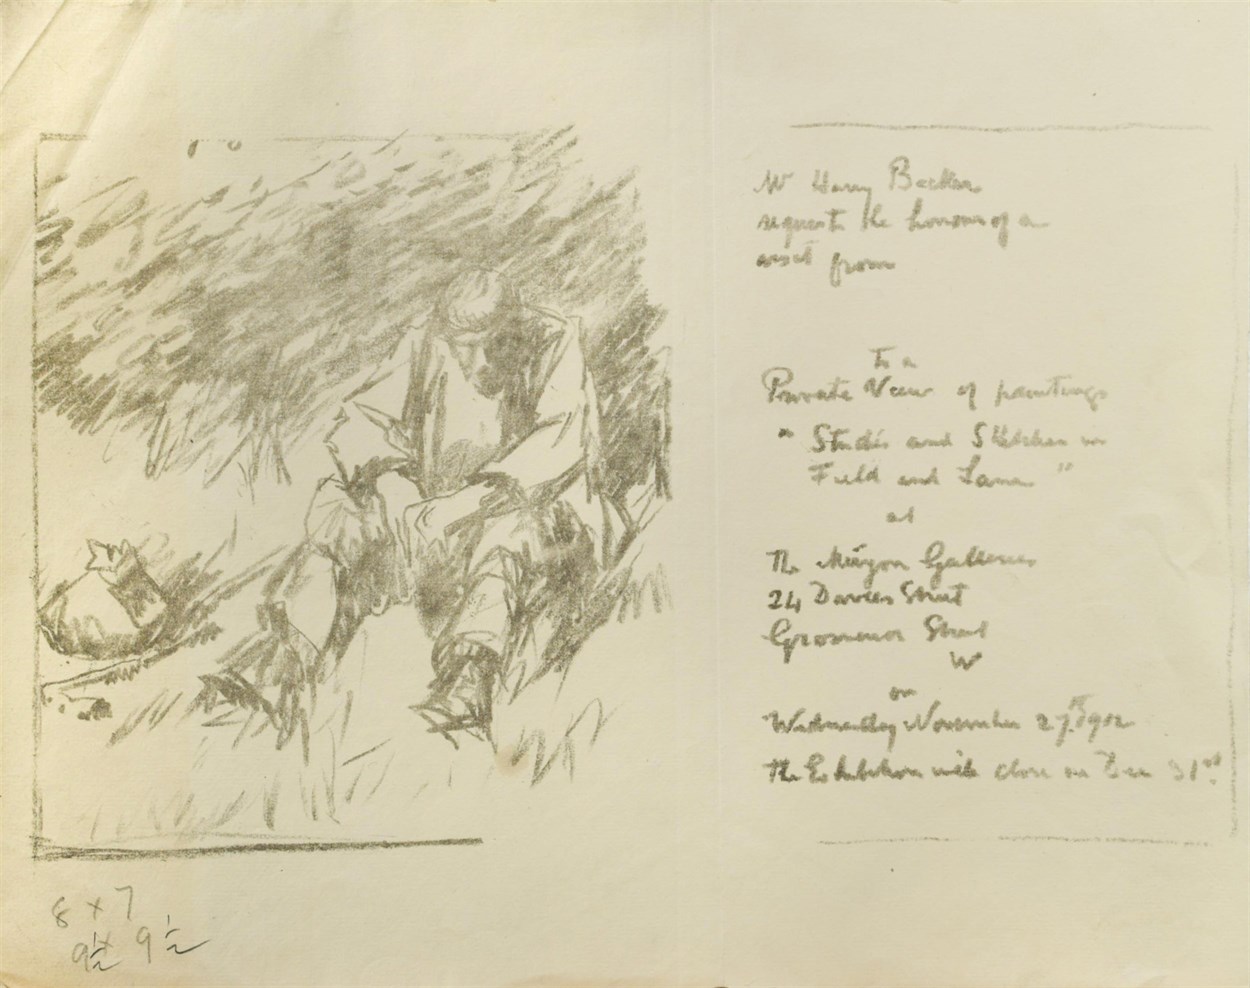 Mr Harry Becker
requests the honour of a
visit from
to a
Private View of paintings
" Studies and Sketches in
Field and Lane "
at
The Galleries
24 Davies Street
Grosvenor Street
W
on
Wednesday November 27th 1902
The Exhibition will close on Dec 31st
8 x 7
9½ x 9½